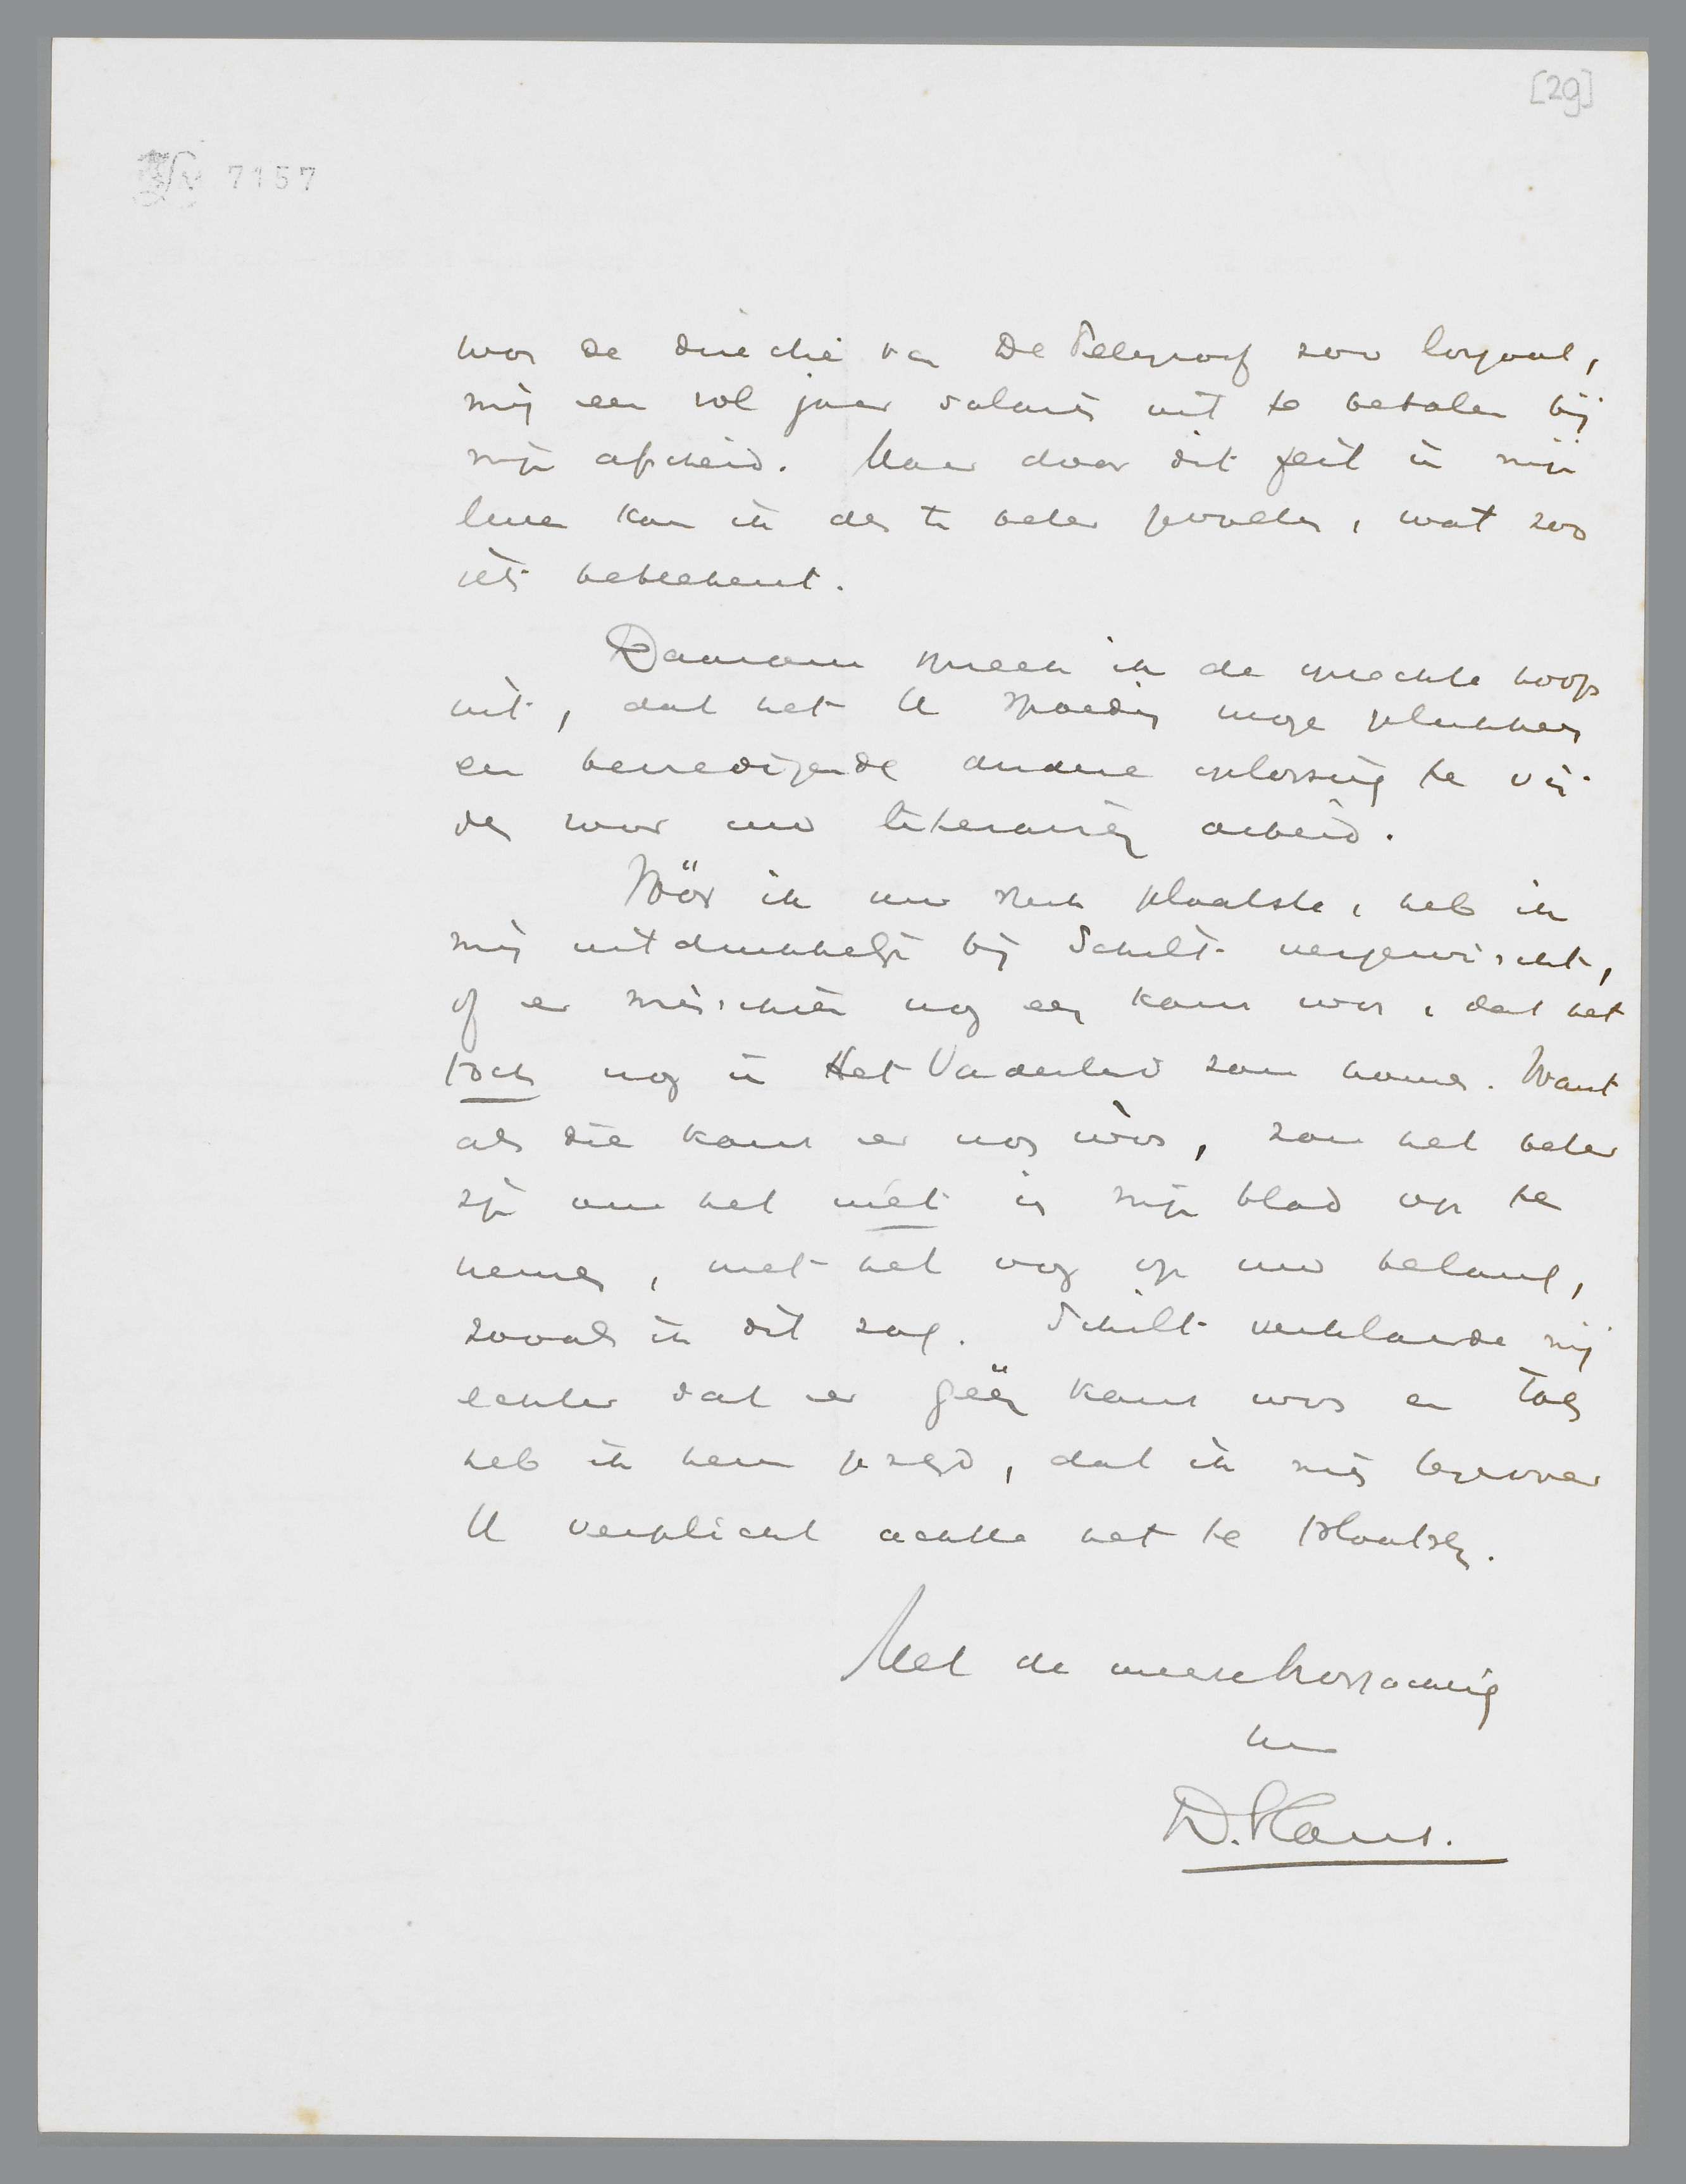 [29]
7157
was de directie van De Telegraaf zoo loyaal,
mij een vol jaar salaris uit te betalen bij
mijn afscheid. Maar door dit feit in mijn
leven kan ik des te beter gevoelen, wat zoo
iets beteekent.
Daarom spreek ik de oprechte hoop
uit, dat het U spoedig moge gelukken
een bevredigende andere oplossing te vin-
den voor uw literairen arbeid.
Vóór ik uw stuk plaatste, heb ik
mij uitdrukkelijk bij Schilt vergewischt,
of er misschien nog een kans was, dat het
toch nog in Het Vaderland zou komen. Want
als die kans er nog wàs, zou het beter
zijn om het niet in mijn blad op te
nemen, met het oog op uw belang,
zooals ik dit zag. Schilt verklaarde mij
echter dat er géén kans was en toen
heb ik hem gezegd, dat ik mij tegenover
U verplicht achtte het te plaatsen.
Met de meeste hoogachting
Uw
D. Hans.